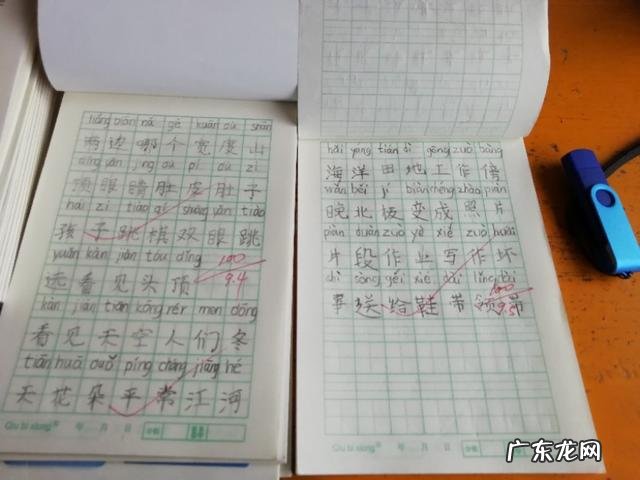 liǎng biān nǎ gè kuān dù shān
两边哪个宽度山
dǐng yǎn jīng dù pí dù zi
顶眼睛肚皮肚子
hái zi tiào qí shuāng yǎn tiào
孩子跳棋双眼跳
yuǎn kàn jiàn tóu dǐng
远看见头顶
100
9.4
kàn jiàn tiān kōng rén men dōng
看见天空人们冬
tiān huā duǒ píng cháng jiāng hé
天花朵平常江河
Qiu bi xiang 年 月 日
hǎi yáng tián dì gōng zuò bàng
海洋田地工作傍
wǎn běi jí biàn chéng zhào piàn
晚北极变成照片
piàn duàn zuò yè xiě zuò huài
片段作业写作坏
shì sòng gěi xié dài lǐng
事送给鞋带领
100
9.5
Qiu bi xiang 年 月 日
广东龙网